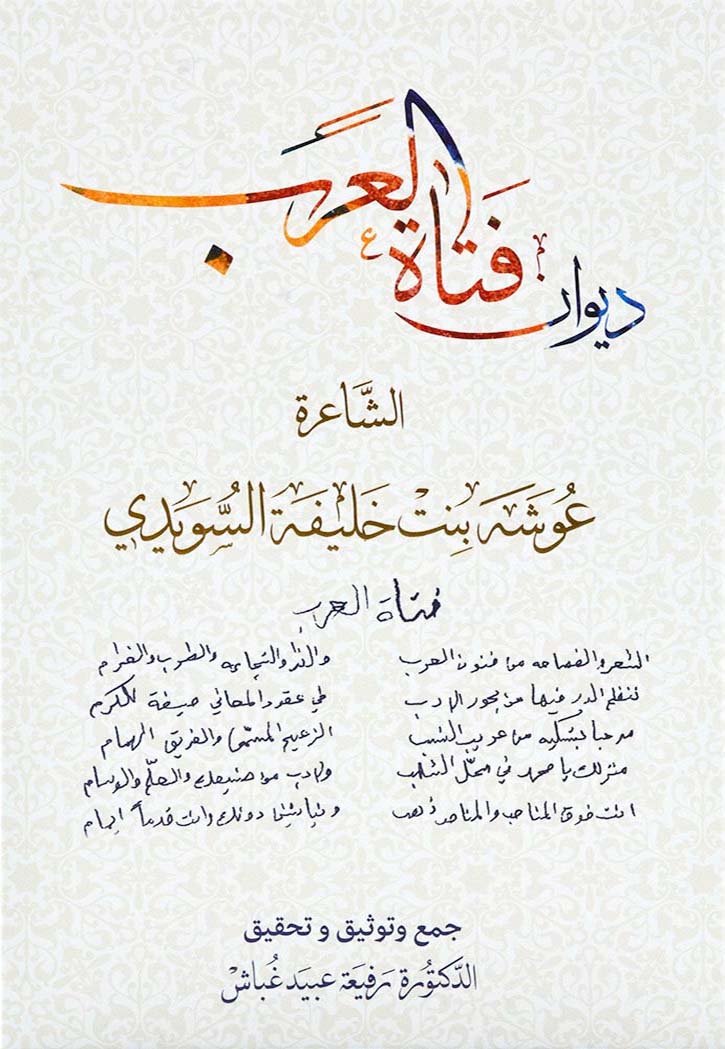 ديوان فَتاةُ العَرَب
الشَّاعرة
عُوشَه بِنت خَليفَة السُّوَيدي
فتاة العرب
الشعر والفصاحه من فنون العرب والطرب والغرام
ننظم الدر فيها من بحور الادب في عقود المعاني صيغة للكرم
مرحبا من عريب النسب الزعيم والفريق الهمام
منزلك يا محمد في محل ولادب من والعلم والوسام
انت فوق المناصب والمناصب ذهب دونك وانت قدماً امام
جمع وتوثيق و تحقيق
الدّكتُورة رَفيعَة عبيَد غُباش